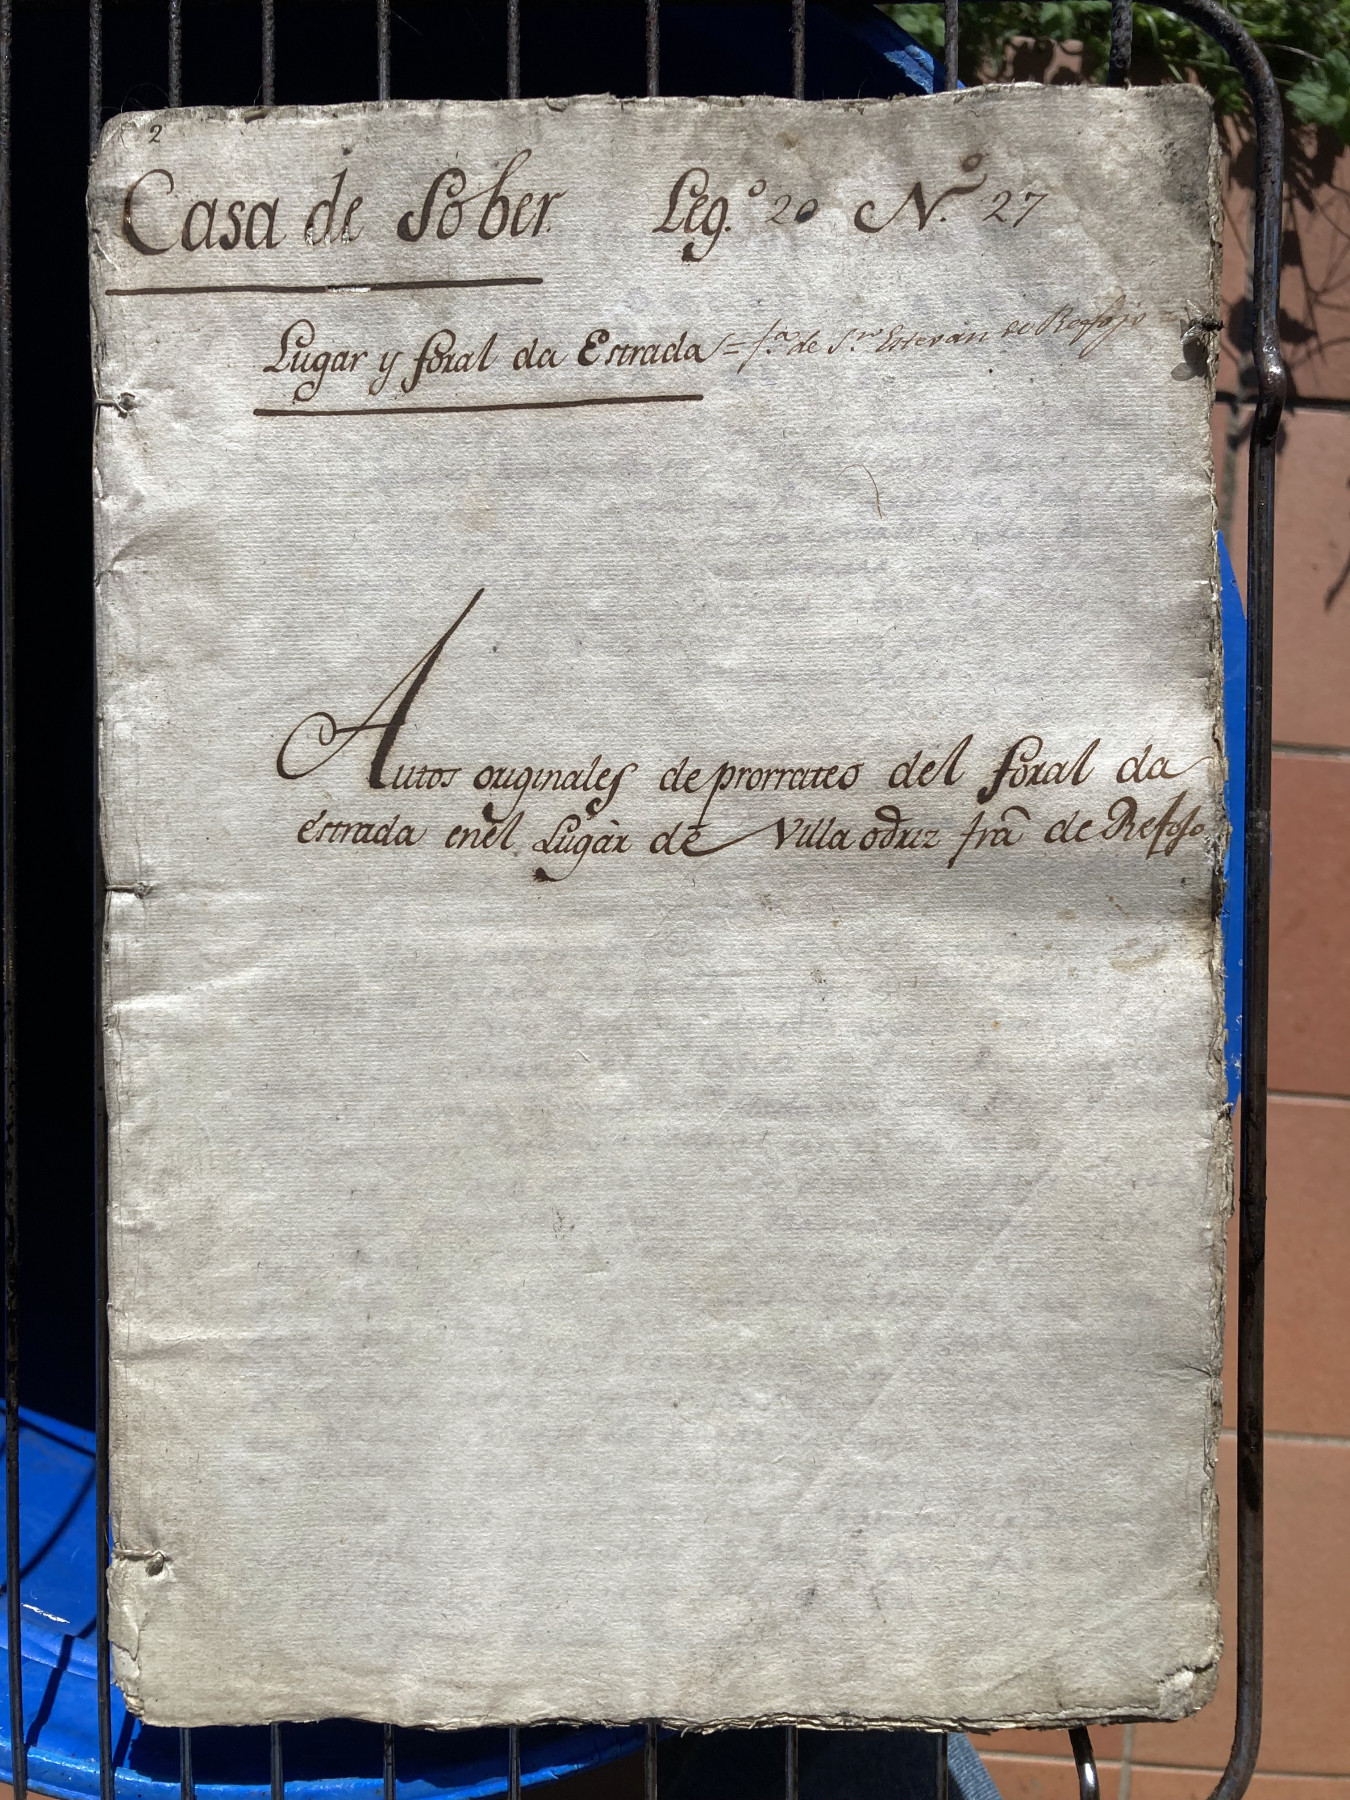 2
Casa de Sober Leg.º 20 N.º 27
Lugar y foral da Estrada = f.ª de S.ⁿ Estevan de Refojo
Autos originales de prorrateo del foral da
estrada enel Lugar de Villa odriz fr̃a de Refojo